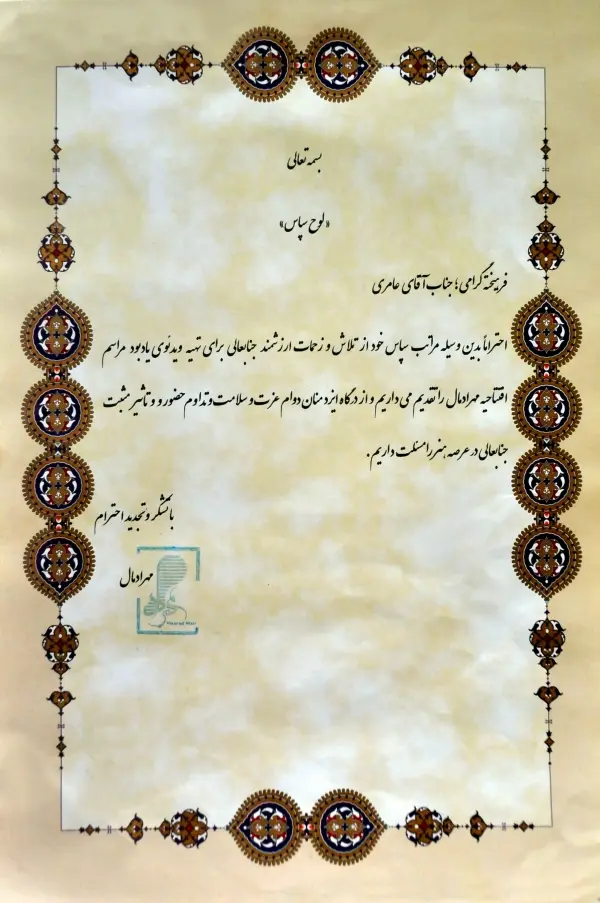 بسمه تعالی
«لوح سپاس»
فرهیخته گرامی؛ جناب آقای عامری
احتراماً بدین وسیله مراتب سپاس خود از تلاش و زحمات ارزشمند جنابعالی برای تهیه ویدئوی یادبود مراسم
افتتاحیه مهرادمال را تقدیم می داریم و از درگاه ایزد منان دوام عزت و سلامت و تداوم حضور و و تأثیر مثبت
جنابعالی در عرصه هنر را مسئلت داریم.
با تشکر و تجدید احترام
مهرادمال
Mehrad Mall